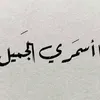 ا أسمَري الجَميل